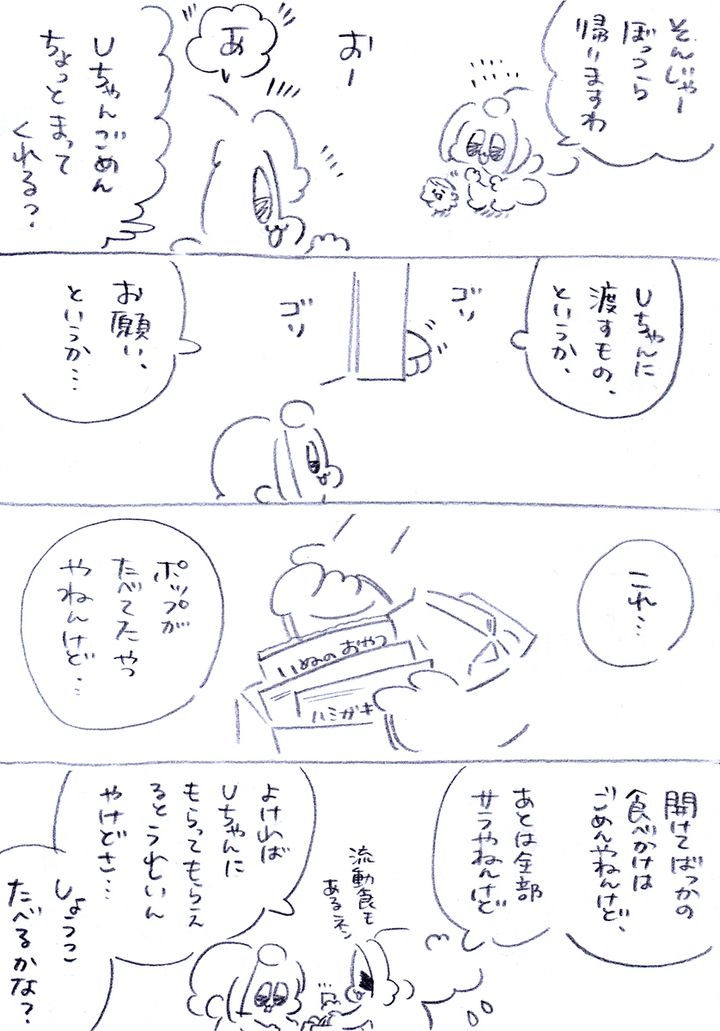 そんじゃー
ぼっつら
帰りますわ
おー
あ
Uちゃんごめん
ちょっとまって
くれる?
Uちゃんに
渡すもの、
というか、
ゴソ
ゴソ
お願い、
というか…
これ…
いぬのおやつ
ハミガキ
ポップが
たべてたやつ
やねんけど…
開けてばっかの
食べかけは
ごめんやねんけど、
あとは全部
サラやねんけど
流動食も
あるネン
よければ
Uちゃんに
もらってもらえ
るとうれいん
やけどさ…
しょうつこ
たべるかな?